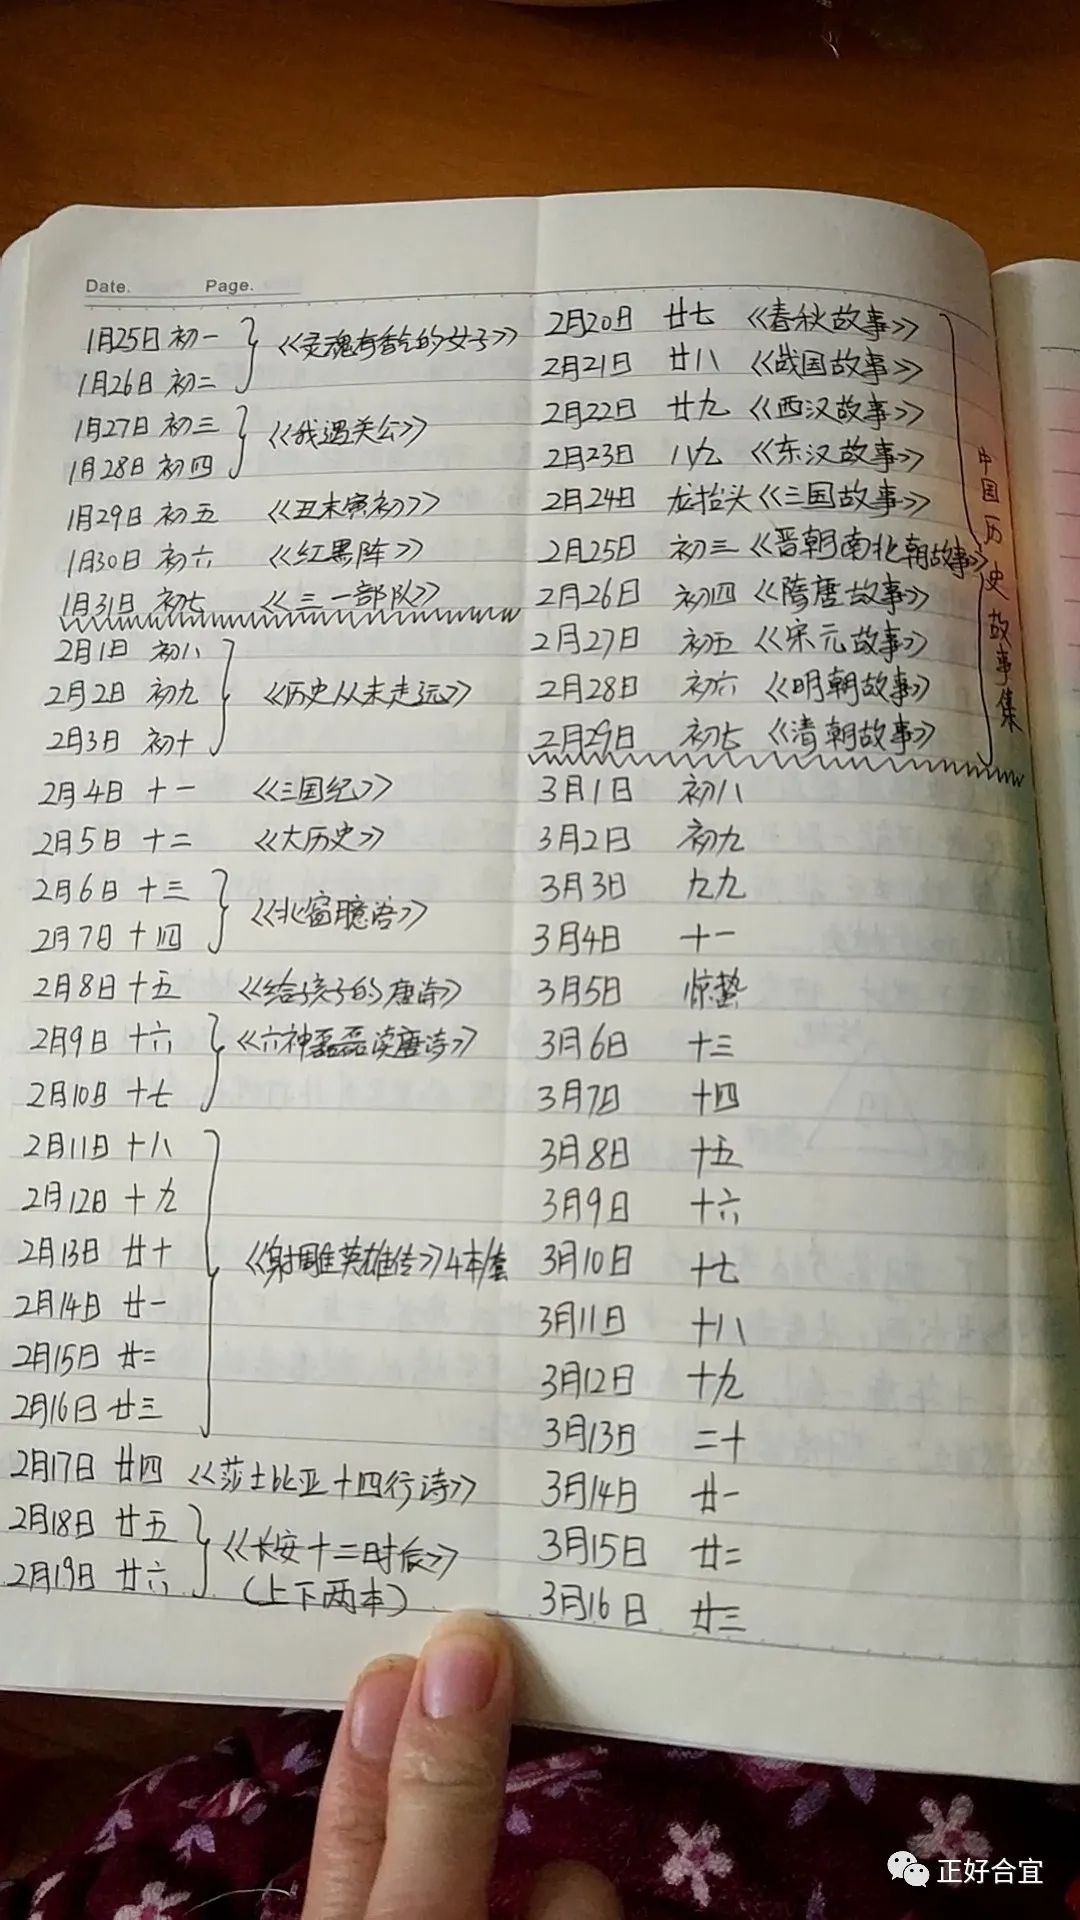 Date. Page.
1月25日 初一
1月26日 初二
《灵魂有香气的女子》
1月27日 初三
1月28日 初四
《我遇关公》
1月29日 初五 《丑末寅初》
1月30日 初六 《红黑阵》
1月31日 初七 《三一部队》
2月1日 初八
2月2日 初九
2月3日 初十
《历史从未走远》
2月4日 十一 《三国纪》
2月5日 十二 《大历史》
2月6日 十三
2月7日 十四
《北窗臆语》
2月8日 十五 《给孩子的唐诗》
2月9日 十六
2月10日 十七
《六神磊磊读唐诗》
2月11日 十八
2月12日 十九
2月13日 廿十
2月14日 廿一
2月15日 廿二
2月16日 廿三
《射雕英雄传》4本/套
2月17日 廿四 《莎士比亚十四行诗》
2月18日 廿五
2月19日 廿六
《长安十二时辰》
(上下两本)
2月20日 廿七 《春秋故事》
2月21日 廿八 《战国故事》
2月22日 廿九 《西汉故事》
2月23日 八九 《东汉故事》
2月24日 龙抬头 《三国故事》
2月25日 初三 《晋朝南北朝故事》
2月26日 初四 《隋唐故事》
2月27日 初五 《宋元故事》
2月28日 初六 《明朝故事》
2月29日 初七 《清朝故事》
中国历史故事集
3月1日 初八
3月2日 初九
3月3日 九九
3月4日 十一
3月5日 惊蛰
3月6日 十三
3月7日 十四
3月8日 十五
3月9日 十六
3月10日 十七
3月11日 十八
3月12日 十九
3月13日 二十
3月14日 廿一
3月15日 廿二
3月16日 廿三
正好合宜